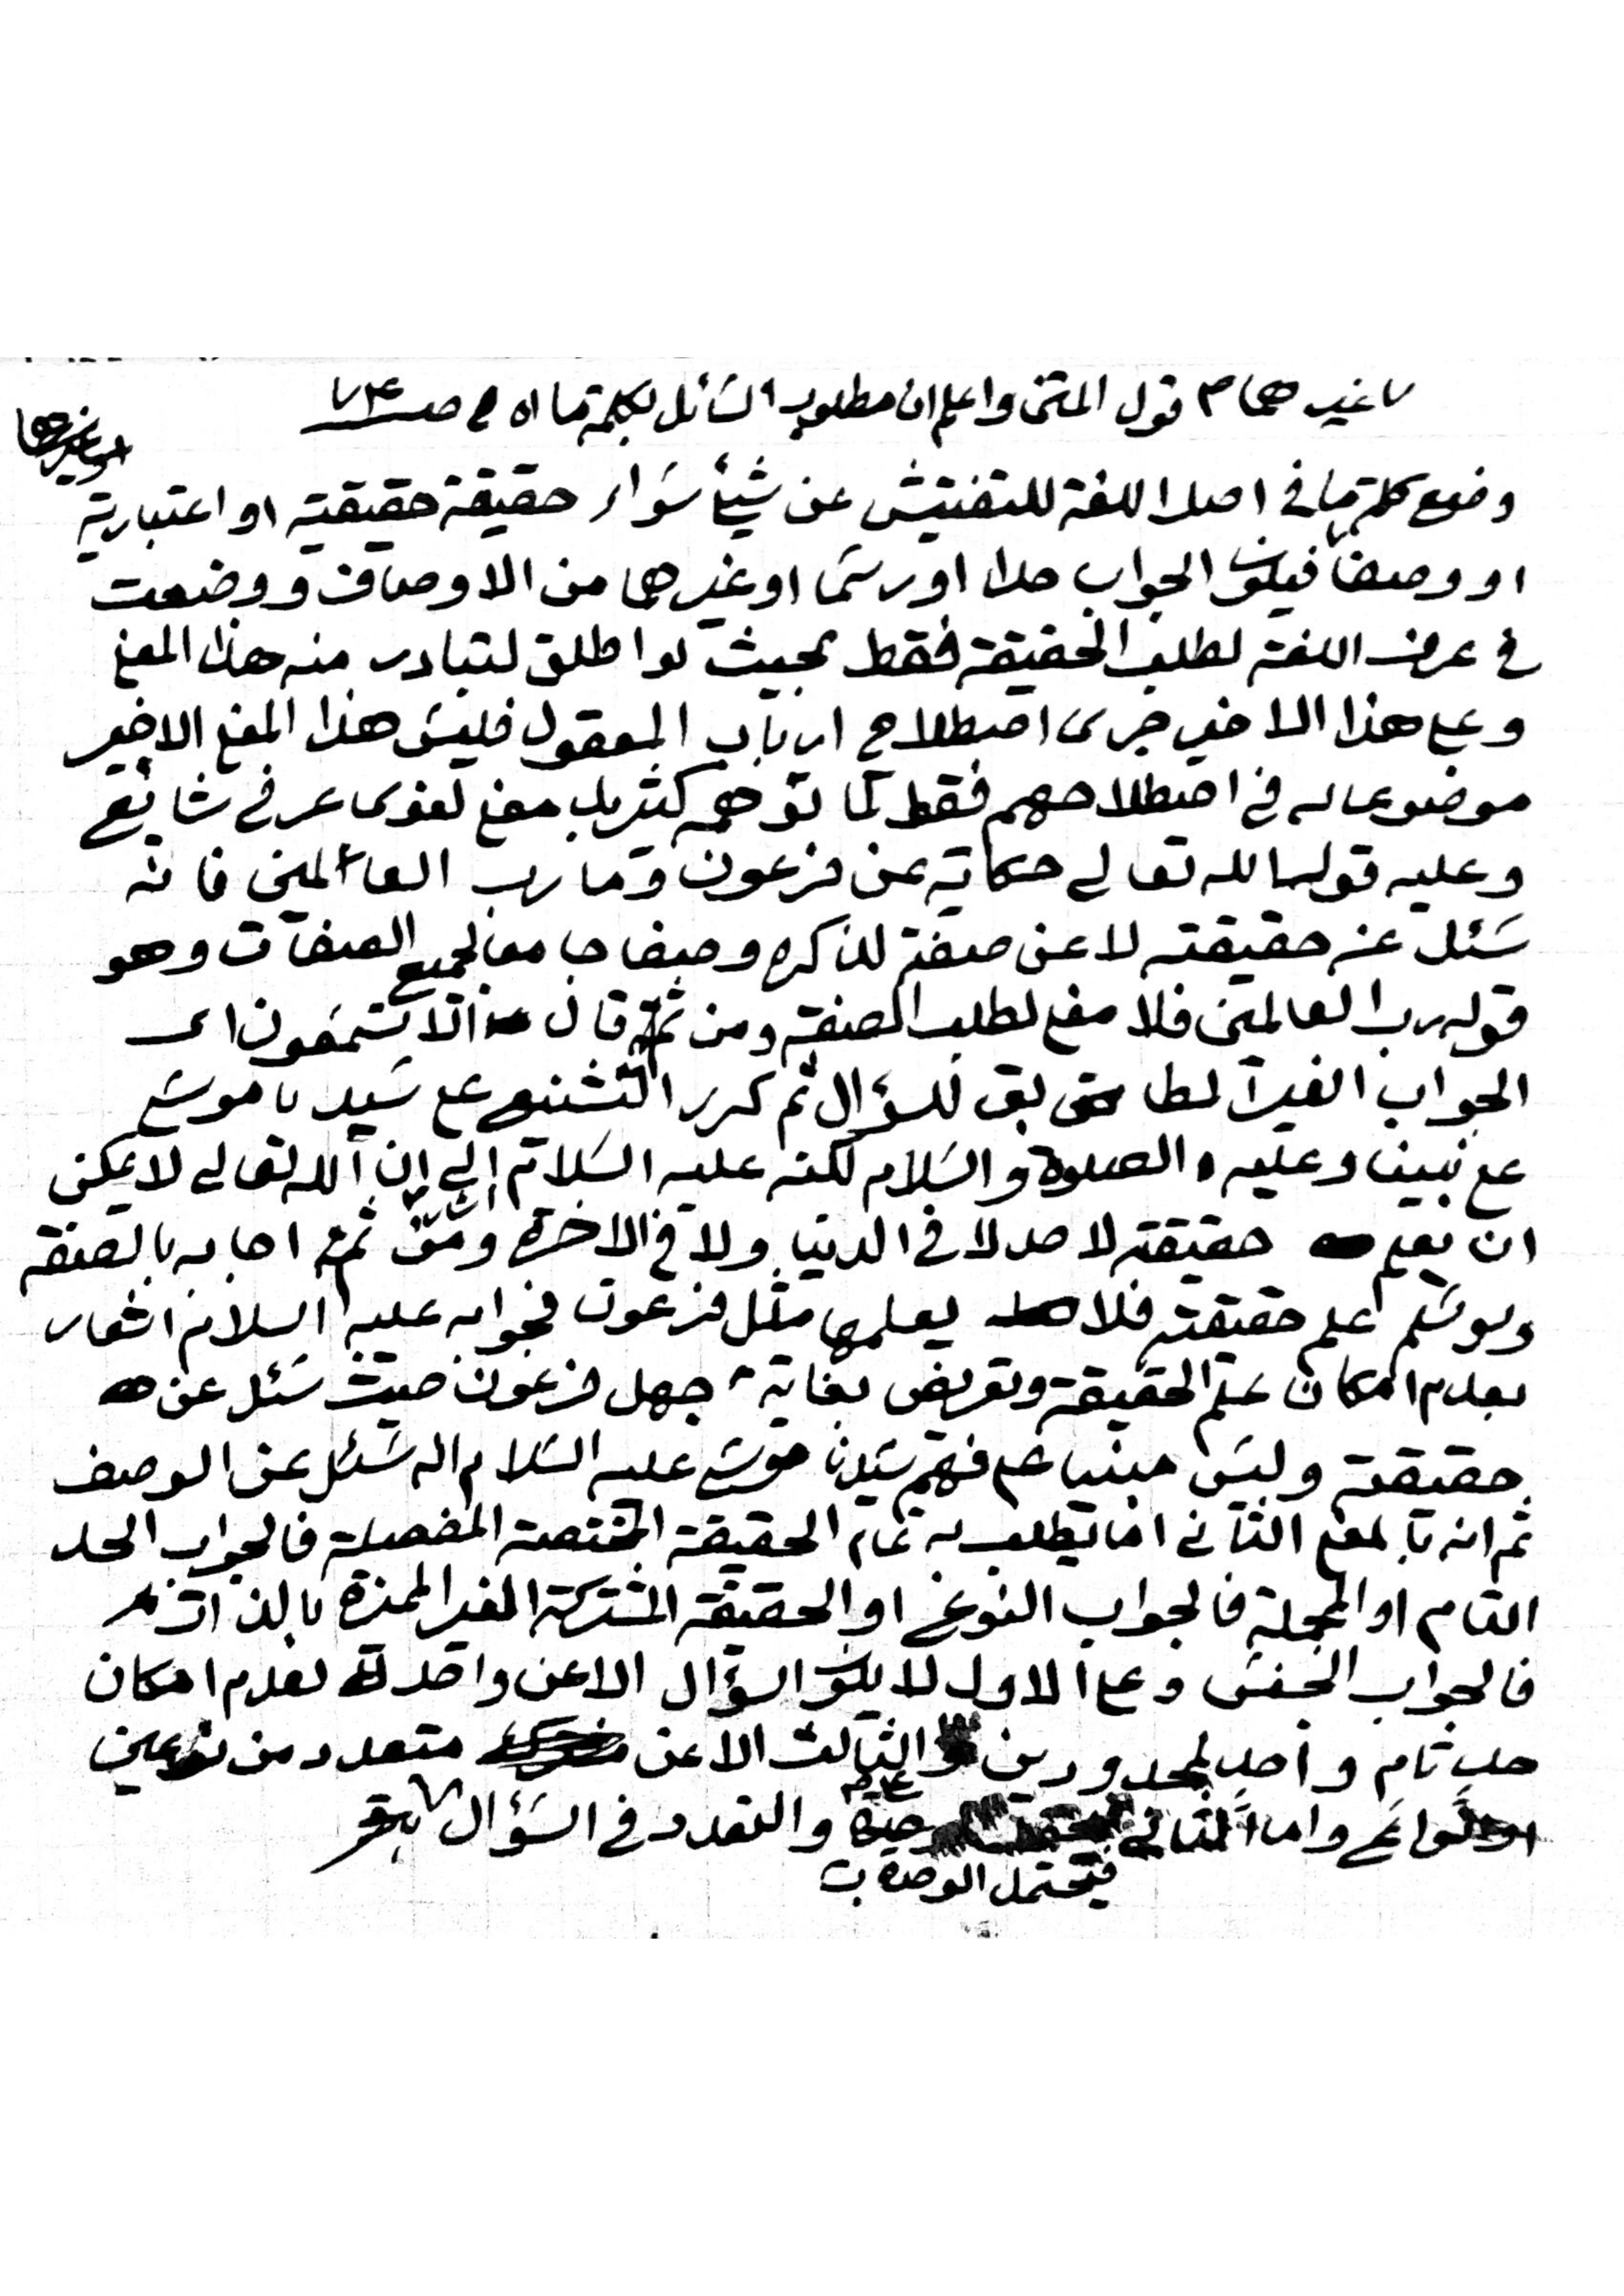 غيرهما م قول المتن واعلم ان مطلوب السائل بكلمة ما اه في صـ ٧٤
او غيرهما
وضع كلمة ما في اصل اللغة للتفتيش عن شيئ سَواء حقيقة حقيقية او اعتبارية
او وصفا فيكون الجواب حدا او رسما او غيرهما من الاوصاف ووضعت
في عرف اللغة لطلب الحقيقة فقط بحيث لو اطلق لتبادر منه هذا المعنى
وعلى هذا الاخير جرى اصطلاح ارباب المعقول فليس هذا المعنى الاخير
موضوعا له في اصطلاحهم فقط كما توهمه كثير بل معنى لغوى عرفي شائع
وعليه قوله الله تعالى حكاية عن فرعون وما رب العالمين فانه
سَئل عن حقيقته لا عن صفته لذكره وصفا جامعا لجميع الصفات وهو
قوله رب العالمين فلا معنى لطلب الصفة ومن ثمة قال الا تستمعون اى
الجواب الغير المطابق للسؤال ثم كرر التشنيع على سَيدنا موسَى
على نبينا وعليه الصلوة والسَلام لكنه عليه السَلام اشار الى ان الله تعالى لا يمكن
ان يعلم حقيقته لاحد لا في الدنيا ولا في الاخرة ومن ثمة اجابه بالصفة
ولو سَلم علم حقيقته فلا يعلمها مثل فرعون فجوابه عليه السلام اشعار
بعدم امكان علم الحقيقة وتعريض بغاية جهل فرعون حيث سَئل عن
حقيقته وليسَ مبنيا على فهم سَيدنا موسَى عليه السَلام انه سَئل عن الوصف
ثم انه بالمعنى الثاني اما يطلب به تمام الحقيقة المختصة المفصلة فالجواب الحد
التام او المجملة فالجواب النوع او الحقيقة المشتركة الغير المميزة بالذات
فالجواب الجنس وعلى الاول لا يكون السؤال الا عن واحد لعدم امكان
حد تام واحد لمحدودين والثالث الا عن متعدد من نوعين
او انواع واما الثاني والتعدد في السَؤال
فيحتمل الوحدة